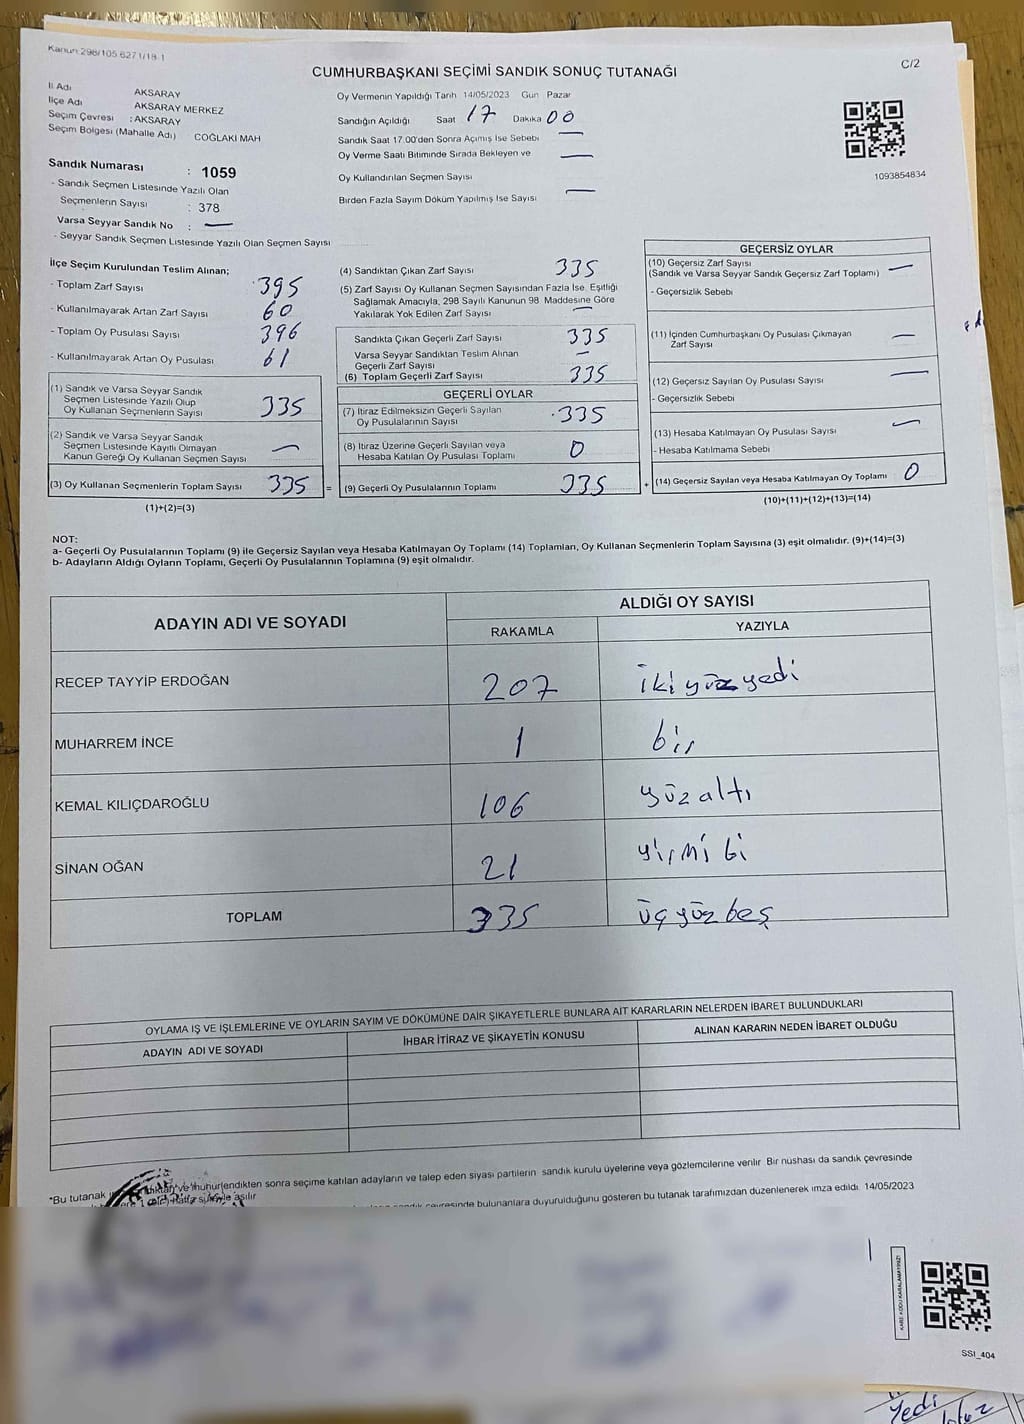 Kanun:298/105 6271/18-1
CUMHURBAŞKANI SEÇİMİ SANDIK SONUÇ TUTANAĞI
C/2
İl Adı AKSARAY
İlçe Adı AKSARAY MERKEZ
Seçim Çevresi : AKSARAY
Seçim Bölgesi (Mahalle Adı) COĞLAKİ MAH
Sandık Numarası : 1059
- Sandık Seçmen Listesinde Yazılı Olan
Seçmenlerin Sayısı : 378
Varsa Seyyar Sandık No : —
- Seyyar Sandık Seçmen Listesinde Yazılı Olan Seçmen Sayısı
Oy Vermenin Yapıldığı Tarih 14/05/2023 Gün Pazar
Sandığın Açıldığı Saat 17 Dakika 00
Sandık Saat 17.00'den Sonra Açılmış İse Sebebi —
Oy Verme Saati Bitiminde Sırada Bekleyen ve —
Oy Kullandırılan Seçmen Sayısı
Birden Fazla Sayım Döküm Yapılmış İse Sayısı —
1093854834
İlçe Seçim Kurulundan Teslim Alınan;
- Toplam Zarf Sayısı 395
- Kullanılmayarak Artan Zarf Sayısı 60
- Toplam Oy Pusulası Sayısı 396
- Kullanılmayarak Artan Oy Pusulası 61
(1) Sandık ve Varsa Seyyar Sandık
Seçmen Listesinde Yazılı Olup
Oy Kullanan Seçmenlerin Sayısı 335
(2) Sandık ve Varsa Seyyar Sandık
Seçmen Listesinde Kayıtlı Olmayan
Kanun Gereği Oy Kullanan Seçmen Sayısı —
(3) Oy Kullanan Seçmenlerin Toplam Sayısı 335 =
(1)+(2)=(3)
(4) Sandıktan Çıkan Zarf Sayısı 335
(5) Zarf Sayısı Oy Kullanan Seçmen Sayısından Fazla İse, Eşitliği
Sağlamak Amacıyla, 298 Sayılı Kanunun 98. Maddesine Göre
Yakılarak Yok Edilen Zarf Sayısı —
Sandıkta Çıkan Geçerli Zarf Sayısı 335
Varsa Seyyar Sandıktan Teslim Alınan
Geçerli Zarf Sayısı —
(6) Toplam Geçerli Zarf Sayısı 335
GEÇERLİ OYLAR
(7) İtiraz Edilmeksizin Geçerli Sayılan
Oy Pusulalarının Sayısı 335
(8) İtiraz Üzerine Geçerli Sayılan veya
Hesaba Katılan Oy Pusulası Toplamı 0
(9) Geçerli Oy Pusulalarının Toplamı 335 +
GEÇERSİZ OYLAR
(10) Geçersiz Zarf Sayısı —
(Sandık ve Varsa Seyyar Sandık Geçersiz Zarf Toplamı)
- Geçersizlik Sebebi
(11) İçinden Cumhurbaşkanı Oy Pusulası Çıkmayan
Zarf Sayısı —
(12) Geçersiz Sayılan Oy Pusulası Sayısı —
- Geçersizlik Sebebi
(13) Hesaba Katılmayan Oy Pusulası Sayısı —
- Hesaba Katılmama Sebebi
(14) Geçersiz Sayılan veya Hesaba Katılmayan Oy Toplamı 0
(10)+(11)+(12)+(13)=(14)
NOT:
a- Geçerli Oy Pusulalarının Toplamı (9) ile Geçersiz Sayılan veya Hesaba Katılmayan Oy Toplamı (14) Toplamları, Oy Kullanan Seçmenlerin Toplam Sayısına (3) eşit olmalıdır. (9)+(14)=(3)
b- Adayların Aldığı Oyların Toplamı, Geçerli Oy Pusulalarının Toplamına (9) eşit olmalıdır.
ADAYIN ADI VE SOYADI ALDIĞI OY SAYISI
RAKAMLA YAZIYLA
RECEP TAYYİP ERDOĞAN 207 iki yüz yedi
MUHARREM İNCE 1 bir
KEMAL KILIÇDAROĞLU 106 yüz altı
SİNAN OĞAN 21 yirmi bi
TOPLAM 335 üç yüz beş
OYLAMA İŞ VE İŞLEMLERİNE VE OYLARIN SAYIM VE DÖKÜMÜNE DAİR ŞİKAYETLERLE BUNLARA AİT KARARLARIN NELERDEN İBARET BULUNDUKLARI
ADAYIN ADI VE SOYADI İHBAR İTİRAZ VE ŞİKAYETİN KONUSU ALINAN KARARIN NEDEN İBARET OLDUĞU
*Bu tutanak ve mühürlendikten sonra seçime katılan adayların ve talep eden siyasi partilerin sandık kurulu üyelerine veya gözlemcilerine verilir Bir nüshası da sandık çevresinde
asılır
çevresinde bulunanlara duyurulduğunu gösteren bu tutanak tarafımızdan düzenlenerek imza edildi. 14/05/2023
KARE KODU KARALAMAYINIZ!
SSI_404
Yedi